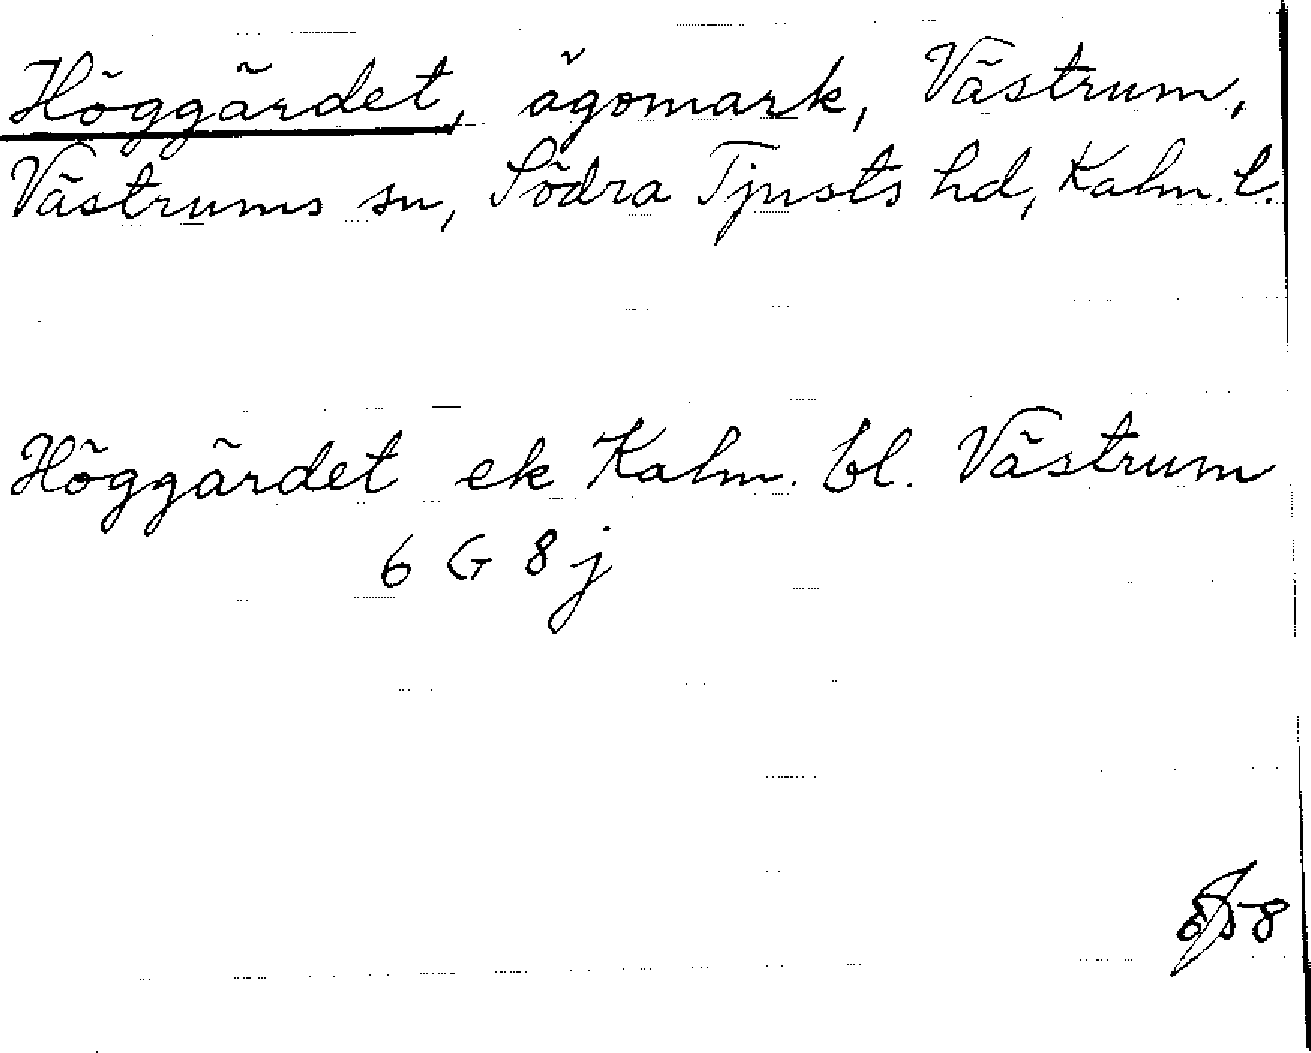 Höggärdet, ägomark, Västrum,
Västrums sn, Södra Tjusts hd, Kalm. l.
Höggärdet ek Kalm. bl. Västrum
6 G 8 j